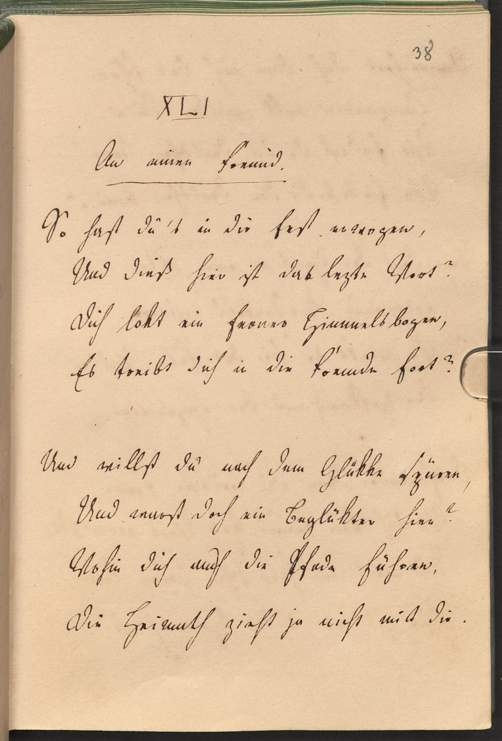 38
XLI
An einen Freund.
So hast du's in dir fest erwogen,
Und dieß hier ist das lezte Wort?
Dich lokt ein ferner Himmelsbogen,
Es treibt dich in die Fremde fort?
Und willst du nach dem Glükke spüren,
Und warst doch ein Beglükter hier?
Wohin dich auch die Pfade führen,
Die Heimath zieht ja nicht mit dir.